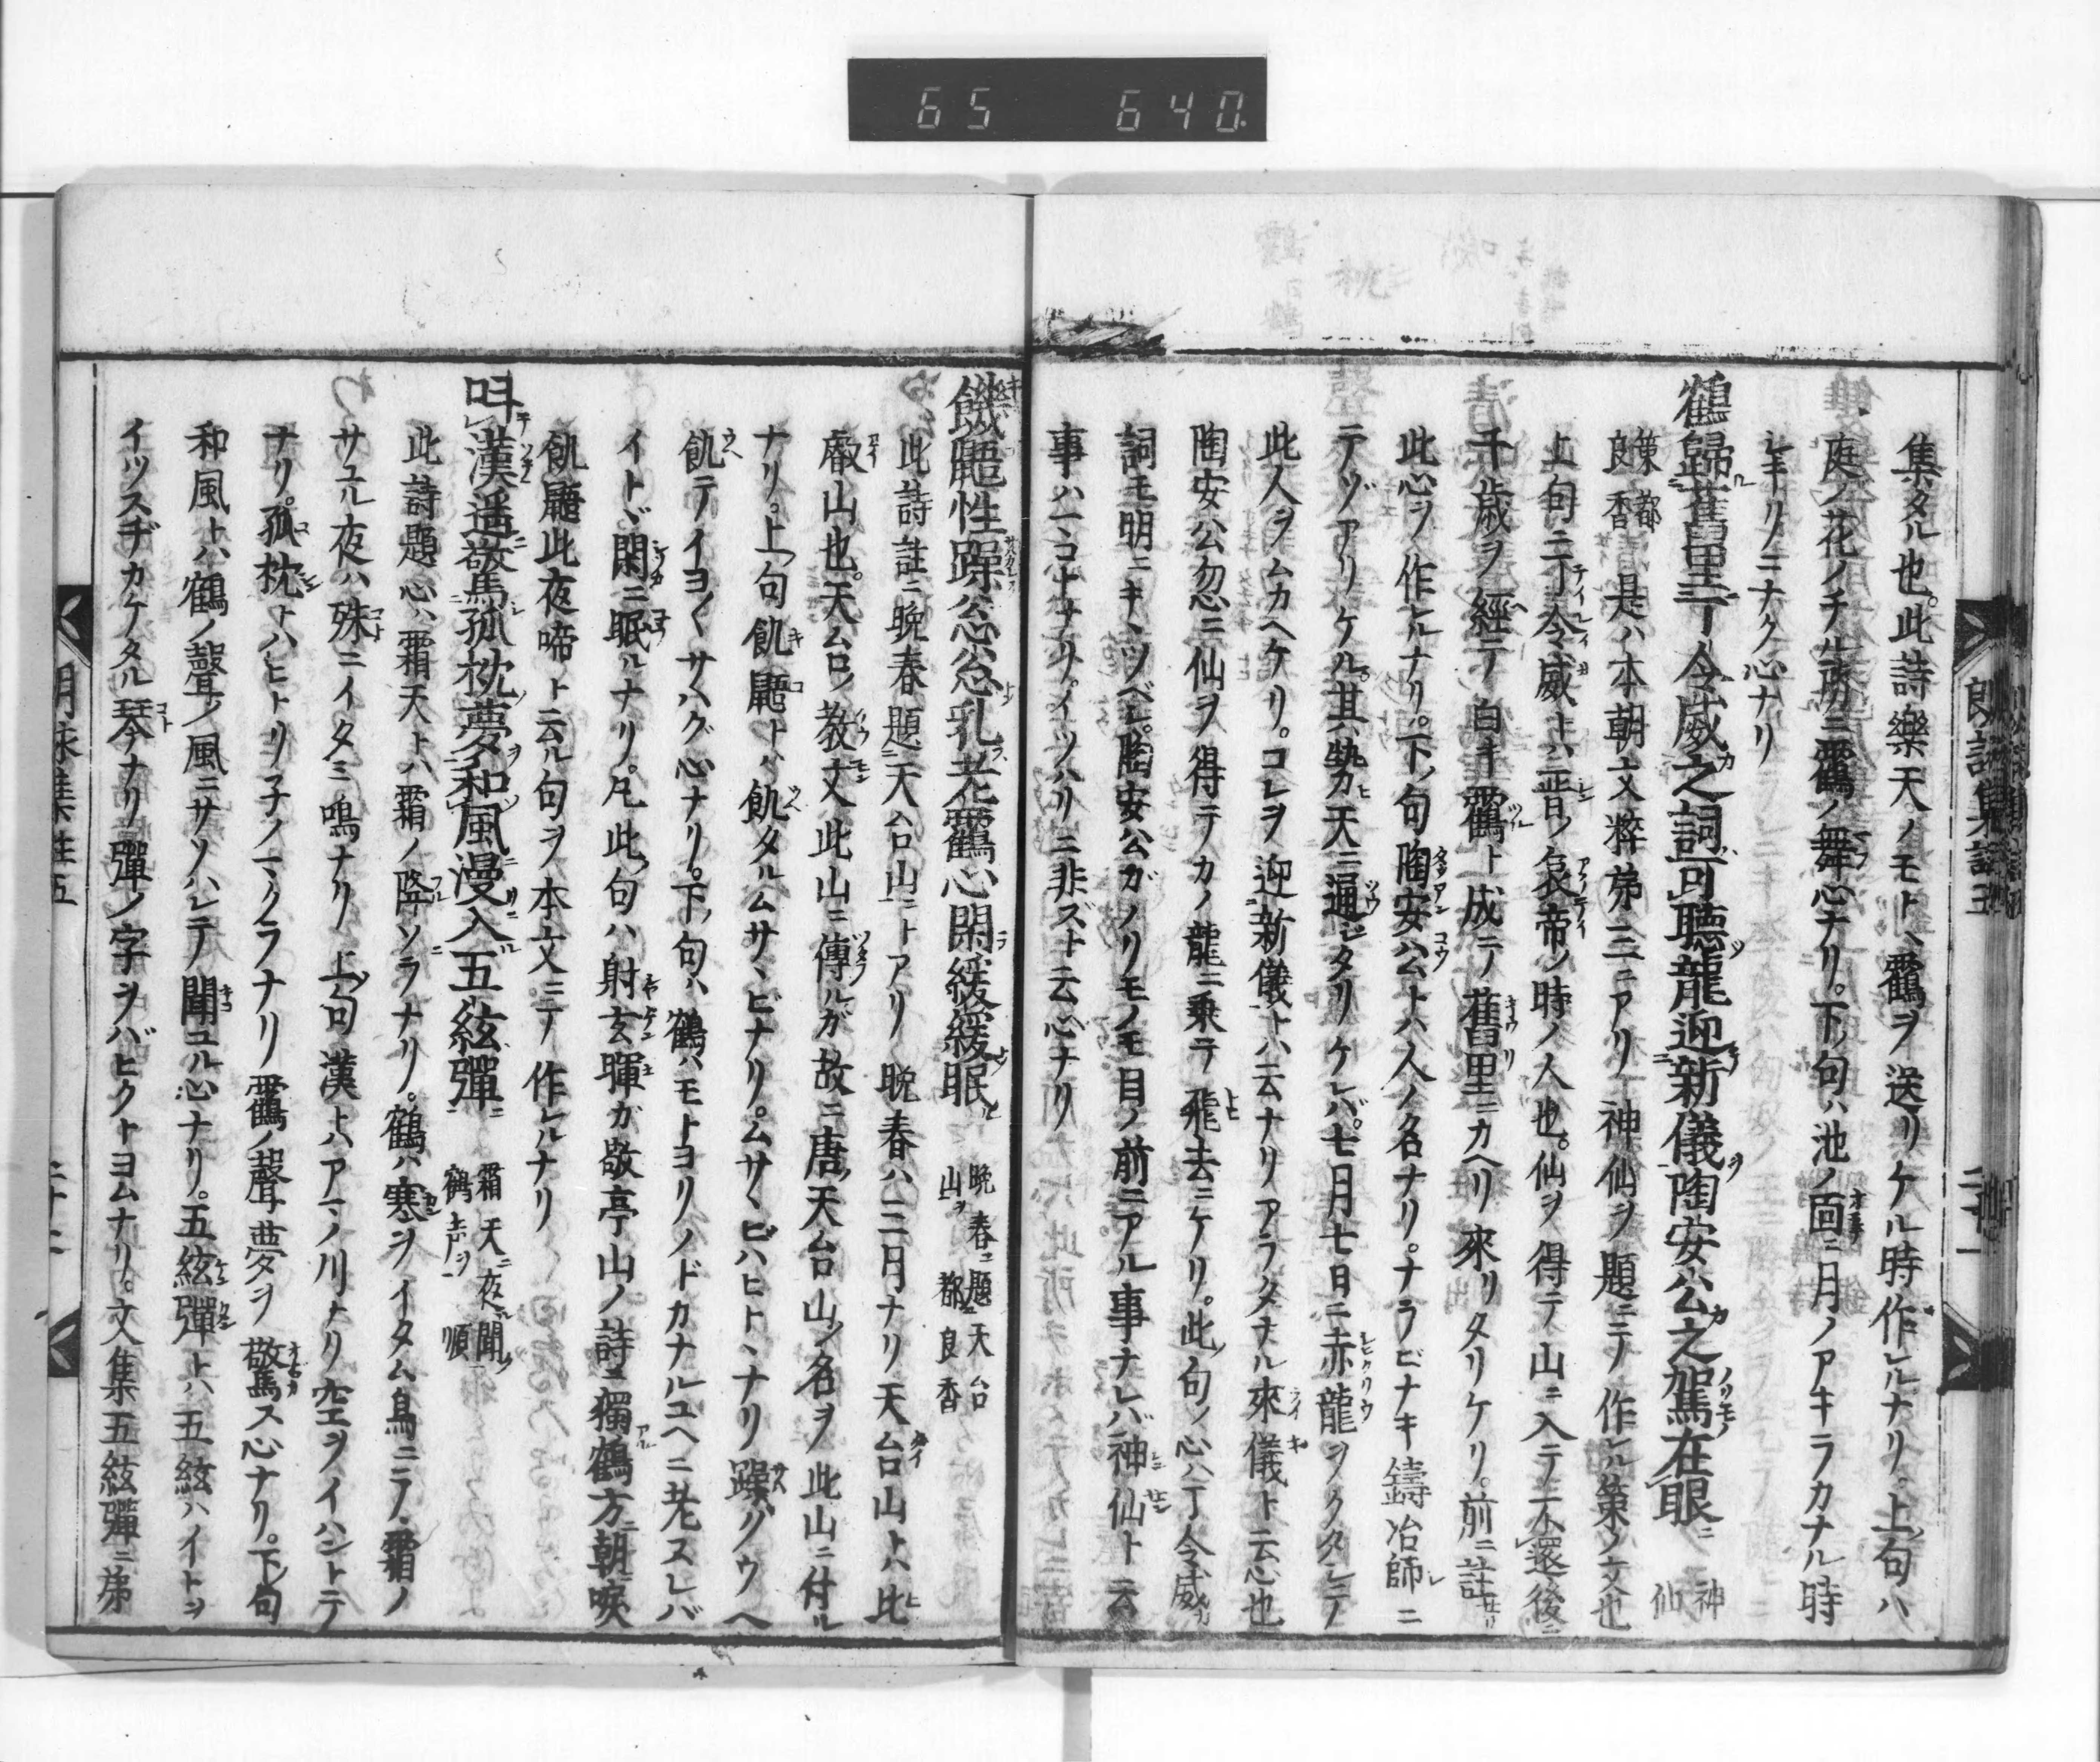 65 640
集タル也。此詩樂天ノモトヘ霍ヲ送リケル時作レルナリ。上句ハ
庭ノ花ノチル所ニ霍ノ舞心ナリ。下句ハ池ノ面ニ月ノアキラカナル時
シキリニナク心ナリ
鶴歸舊里丁令威之詞可聽龍迎新儀陶安公之駕在眼 神仙
策 都良香 是ハ本朝文粹第三ニアリ 神仙ヲ題ニテ作レル策ノ文也
上句ニ丁令威トハ晋ノ哀帝ノ時ノ人也。仙ヲ得テ山ニ入テ不還後ニ
千歳ヲ經テ白キ霍ト成テ舊里ニカヘリ來リタリケリ。前ニ註セリ
此心ヲ作レルナリ。下句陶安公トハ人ノ名ナリ。ナラビナキ鑄冶師ニ
テゾアリケル。其勢天ニ通ジタリケレバ。七月七日ニ赤龍ヲクタシテ
此人ヲムカヘケリ。コレヲ迎新儀トハ云ナリアラタナル來儀ト云心也
陶安公忽ニ仙ヲ得テカノ龍ニ乗テ飛去ニケリ。此句ノ心ハ丁令威ガ
詞モ明ニキヽツベシ。陶安公ガノリモノモ目ノ前ニアル事ナレバ神仙ト云
事ハマコトナリ。イツハリニ非ズト云心ナリ
朗詠集註五
二十一
饑鼯性躁忩忩乳老霍心閑緩緩眠 晩春題天台山 都良香
此詩註ニ晩春題天台山ニトアリ晩春ハ三月ナリ天台山トハ比
叡山也。天台ノ教文此山ニ傳ルガ故ニ唐ノ天台山ノ名ヲ此山ニ付ル
ナリ。上句飢鼯トハ飢タルムサヽビナリ。ムサヽビハヒトヽナリ躁グウヘ
飢テイヨ〱サハグ心ナリ。下句ハ鶴ハモトヨリノドカナルユヘニ老スレバ
イトヾ閑ニ眠ルナリ。凡此句ハ射玄暉ガ敬亭山ノ詩ニ獨鶴方朝唳
飢鼯此夜啼ト云ル句ヲ本文ニテ作レルナリ
叫漢遥驚孤枕夢和風漫入五絃彈 霜天夜聞鶴声 順
此詩題心ハ霜天トハ霜ノ降ソラナリ。鶴ハ寒ヲイタム鳥ニテ。霜ノ
サユル夜ハ殊ニイタミ鳴ナリ 上句漢トハアマノ川ナリ空ヲイハントテ
ナリ。孤枕トハヒトリ子ノマクラナリ霍ノ聲夢ヲ驚ス心ナリ。下句
和風トハ鶴ノ聲ノ風ニサソハレテ聞ユル心ナリ。五絃彈トハ五絃ハイトヲ
イツスヂカケタル琴ナリ彈ノ字ヲバヒクトヨムナリ。文集五絃彈ニ第